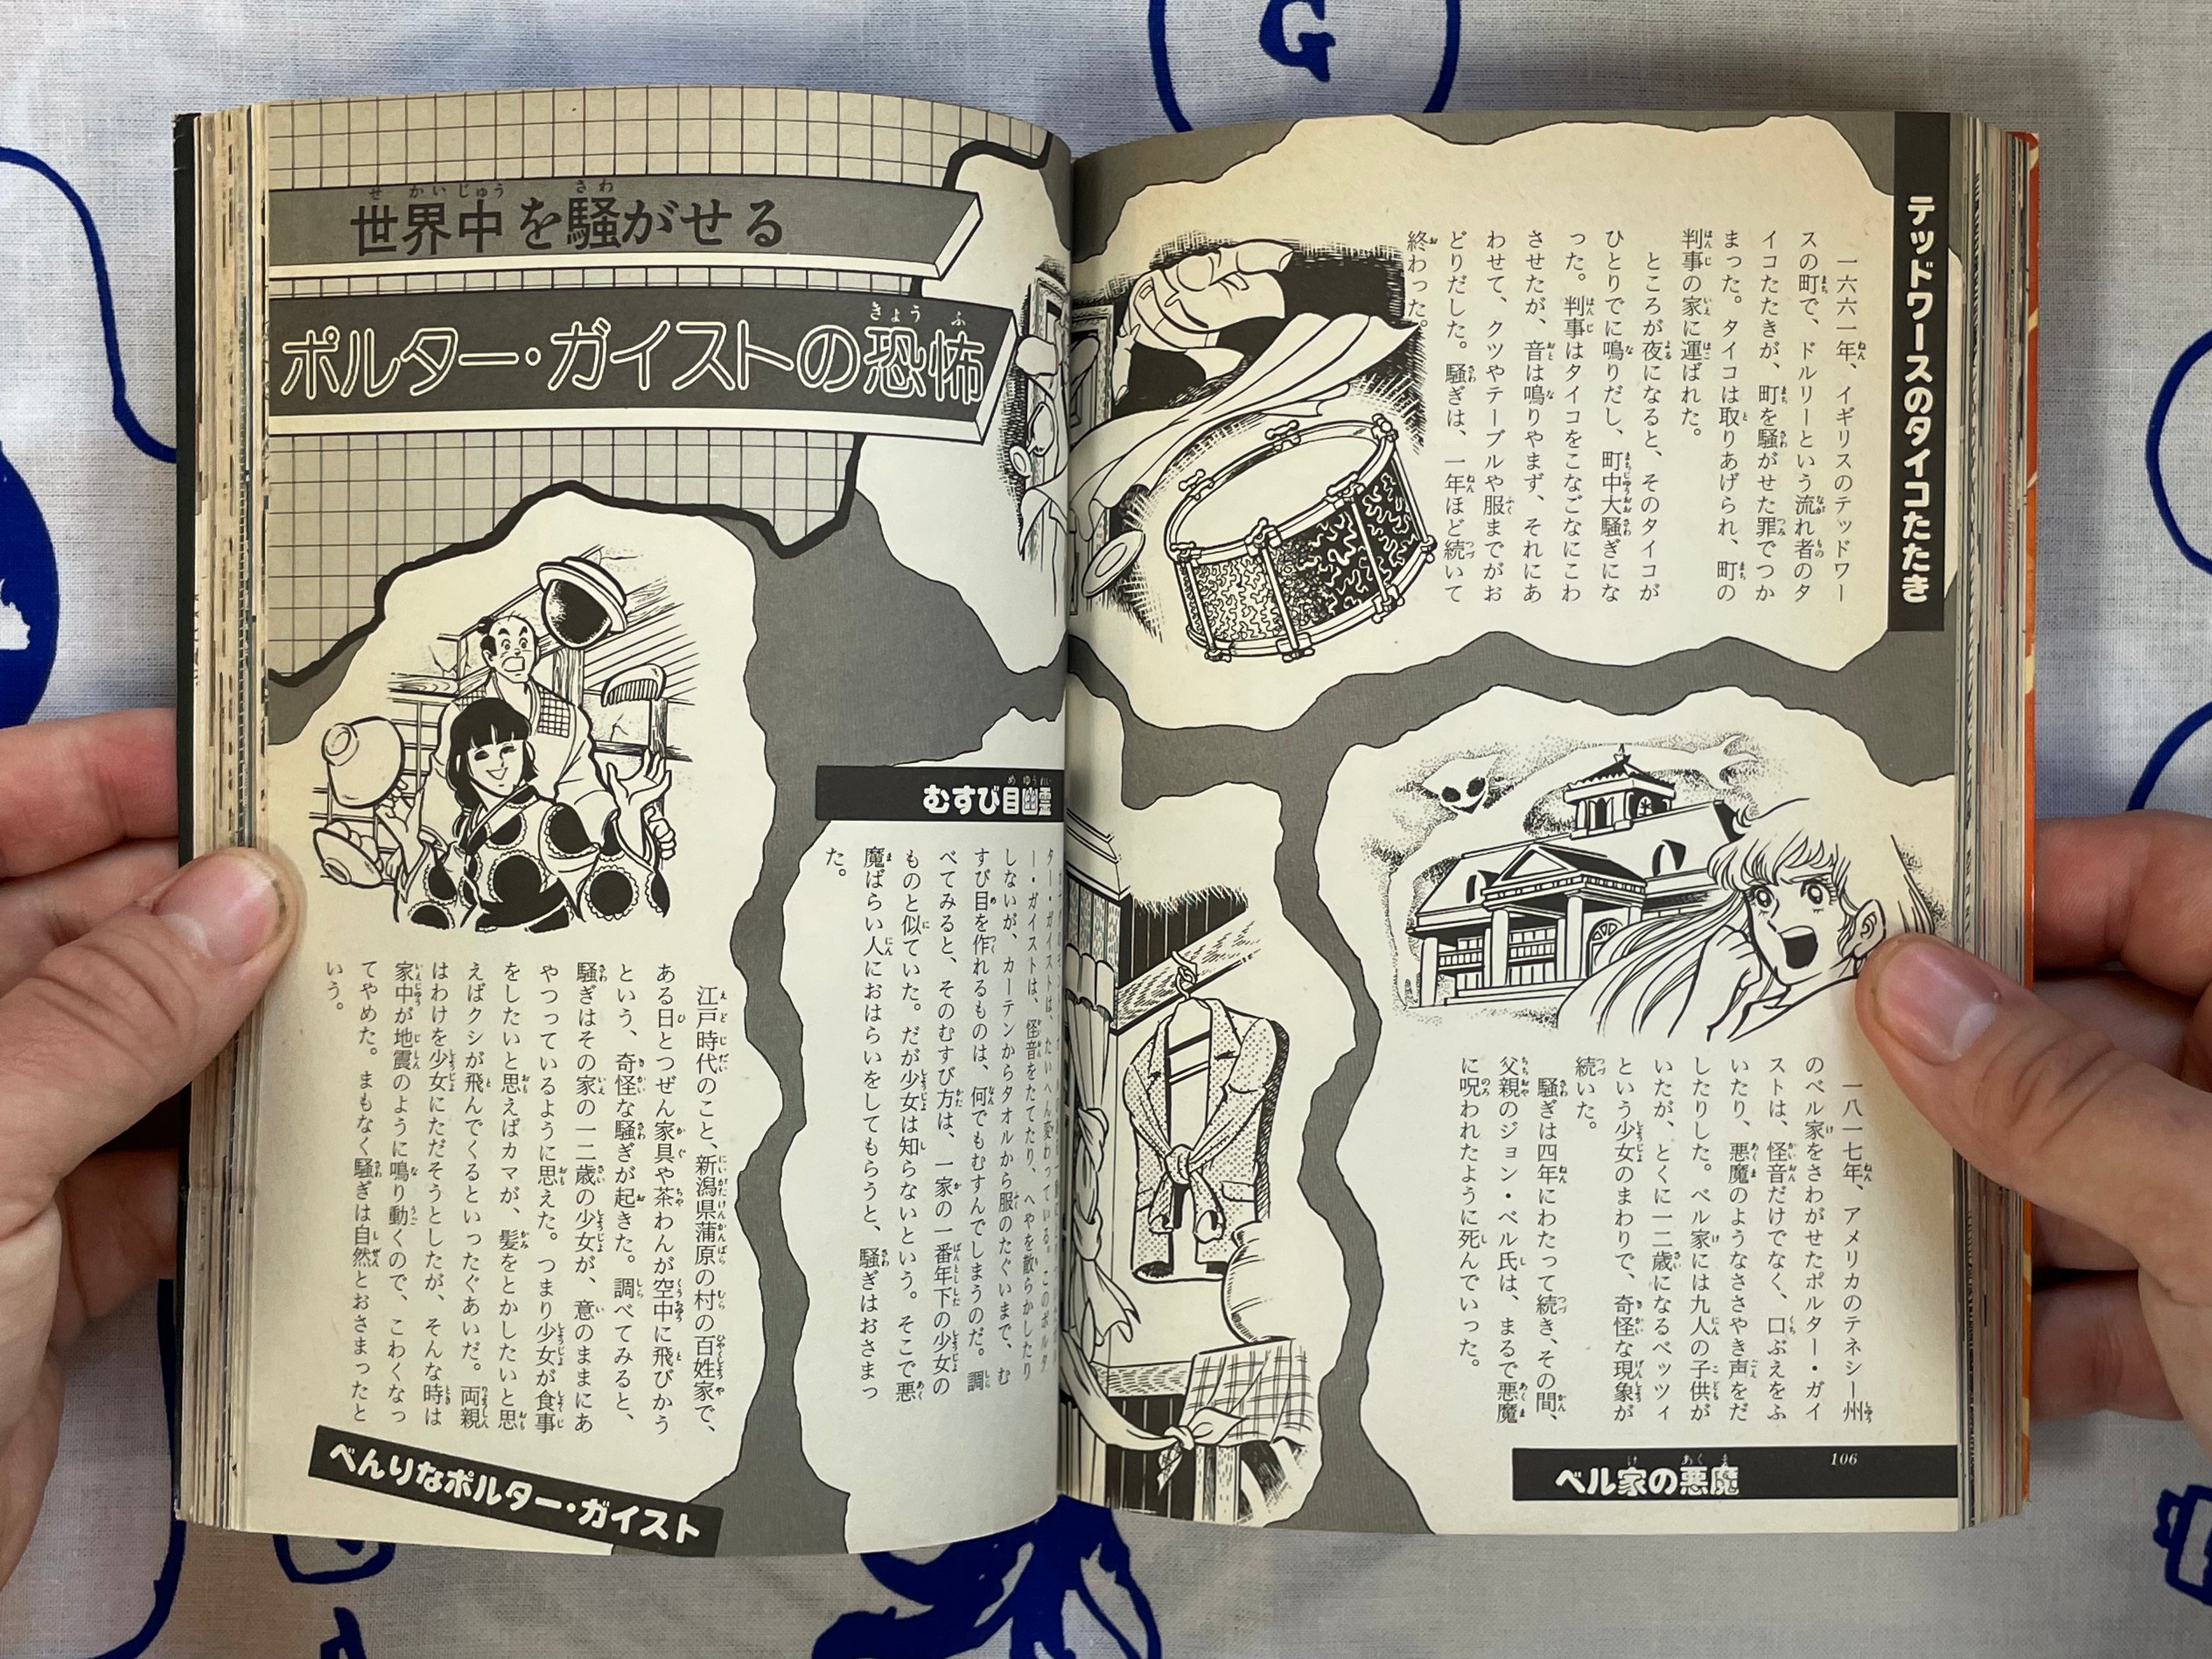 世界中を騒がせる
ポルター・ガイストの恐怖
テッドワースのタイコたたき
一六六一年、イギリスのテッドワー
スの町で、ドルリーという流れ者のタ
イコたたきが、町を騒がせた罪でつか
まった。タイコは取りあげられ、町の
判事の家に運ばれた。
ところが夜になると、そのタイコが
ひとりでに鳴りだし、町中大騒ぎにな
った。判事はタイコをこなごなにこわ
させたが、音は鳴りやまず、それにあ
わせて、クツやテーブルや服までがお
どりだした。騒ぎは、一年ほど続いて
終わった。
ベル家の悪魔
一八一七年、アメリカのテネシー州
のベル家をさわがせたポルター・ガイ
ストは、怪音だけでなく、口ぶえをふ
いたり、悪魔のようなささやき声をだ
したりした。ベル家には九人の子供が
いたが、とくに一二歳になるベッツィ
という少女のまわりで、奇怪な現象が
続いた。
騒ぎは四年にわたって続き、その間、
父親のジョン・ベル氏は、まるで悪魔
に呪われたように死んでいった。
106
むすび目幽霊
ター・ガイストは、たいへん変わっている。このポルタ
ー・ガイストは、怪音をたてたり、へやを散らかしたり
しないが、カーテンからタオルから服のたぐいまで、む
すび目を作れるものは、何でもむすんでしまうのだ。調
べてみると、そのむすび方は、一家の一番年下の少女の
ものと似ていた。だが少女は知らないという。そこで悪
魔ばらい人におはらいをしてもらうと、騒ぎはおさまっ
た。
べんりなポルター・ガイスト
江戸時代のこと、新潟県蒲原の村の百姓家で、
ある日とつぜん家具や茶わんが空中に飛びかう
という、奇怪な騒ぎが起きた。調べてみると、
騒ぎはその家の一二歳の少女が、意のままにあ
やつっているように思えた。つまり少女が食事
をしたいと思えばカマが、髪をとかしたいと思
えばクシが飛んでくるといったぐあいだ。両親
はわけを少女にただそうとしたが、そんな時は
家中が地震のように鳴り動くので、こわくなっ
てやめた。まもなく騒ぎは自然とおさまったと
いう。
G